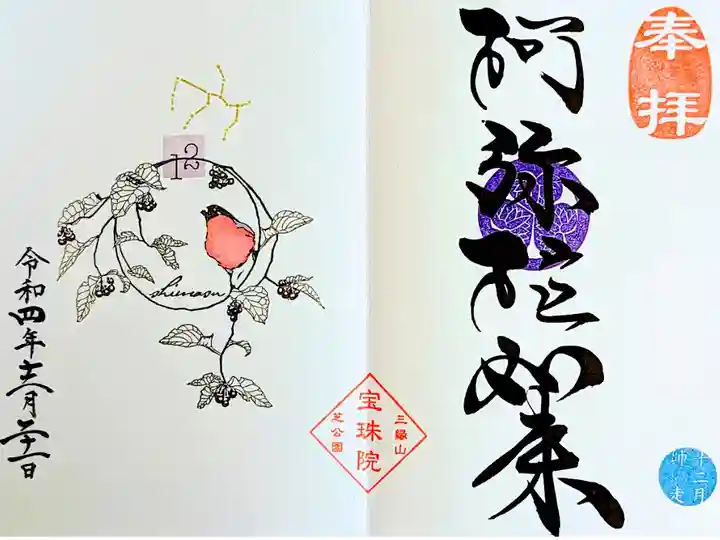 奉拝
阿弥陀如来
十二月
師走
三縁山
宝珠院
芝公園
12
shiwasu
令和四年十二月二十一日